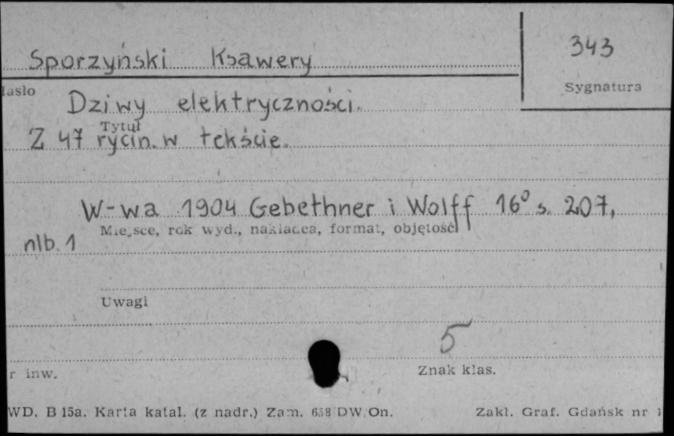 Sporzyński Ksawery
343
Sygnatura
Hasło
Dziwy elektryczności.
Tytuł
Z 47 rycin. w tekście.
W-wa 1904 Gebethner i Wolff 16° s. 207,
Miejsce, rok wyd., nakładca, format, objętość
nlb. 1
Uwagi
5
r inw.
Znak klas.
WD. B 15a. Karta katal. (z nadr.) Zam. 638 DW. On.
Zakl. Graf. Gdańsk nr 1